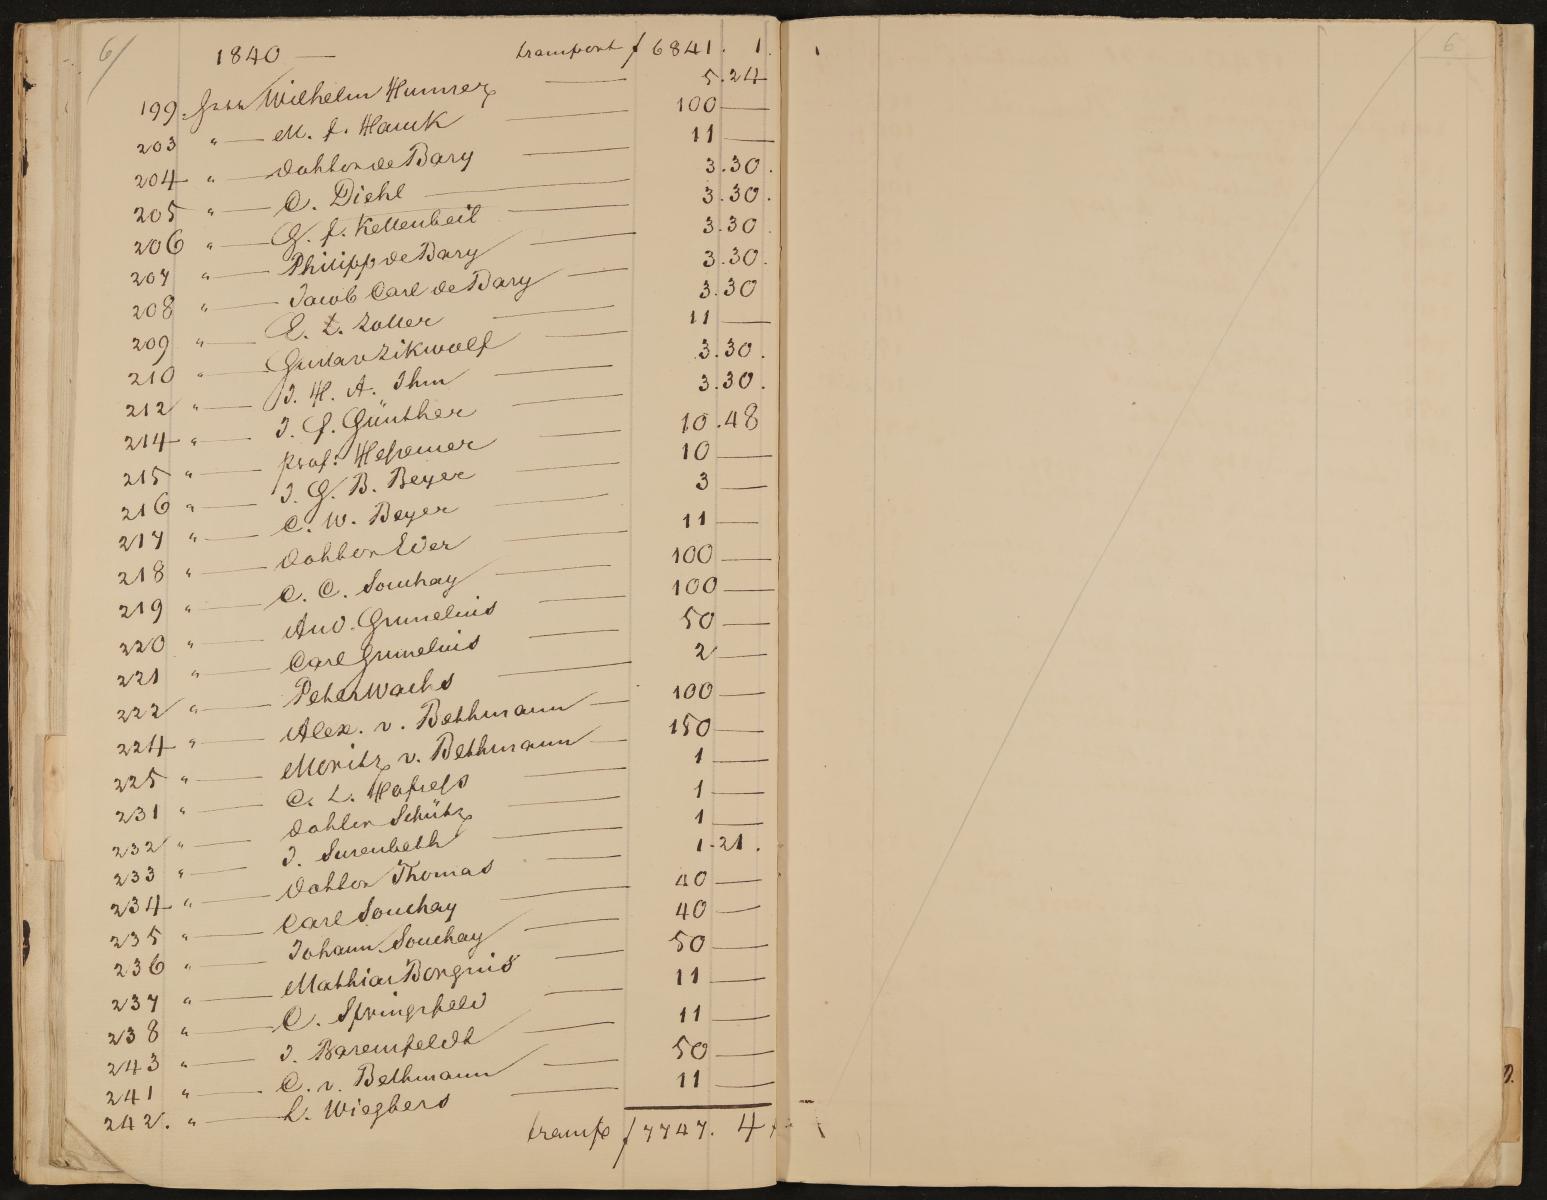 6/
1840 — transport f 6841. 1.
199. Herr Wilhelm Hummer — 5.24
203 " — M. J. Hauck — 100 —
204 " — Dohtor de Bary — 11 —
205 " — C. Diehl — 3.30.
206 " — G. J. Kettenbeil — 3.30.
207 " — Philipp de Bary — 3.30.
208 " — Jacob Carl de Bary — 3.30.
209 " — E. L. Zoller — 3.30
210 " — Gustav Zikwolf — 11 —
212 " — J. H. A. Ihm — 3.30.
214 " — J. J. Günther — 3.30.
215 " — Prof. Hessemer — 10.48
216 " — J. G. B. Beyer — 10 —
217 " — C. W. Beyer — 3 —
218 " — Dohtor Eder — 11 —
219 " — C. C. Souchay — 100 —
220 " — And. Grunelius — 100 —
221 " — Carl Grunelius — 50 —
222 " — Peter Wachs — 2 —
224 " — Alex. v. Bethmann — 100 —
225 " — Moritz v. Bethmann — 150 —
231 " — C. L. — 1 —
232 " — Dohtor Schütz — 1 —
233 " — J. — 1 —
234 " — Dohtor Thomas — 1.21.
235 " — Carl Souchay — 40 —
236 " — Johann Souchay — 40 —
237 " — Mathias Borgnis — 50 —
238 " — C. Springsfeld — 11 —
243 " — J. Barensfeldt — 11 —
241 " — C. v. Bethmann — 50 —
242. " — L. Wiegbers — 11 —
transp f 7747. 4
6